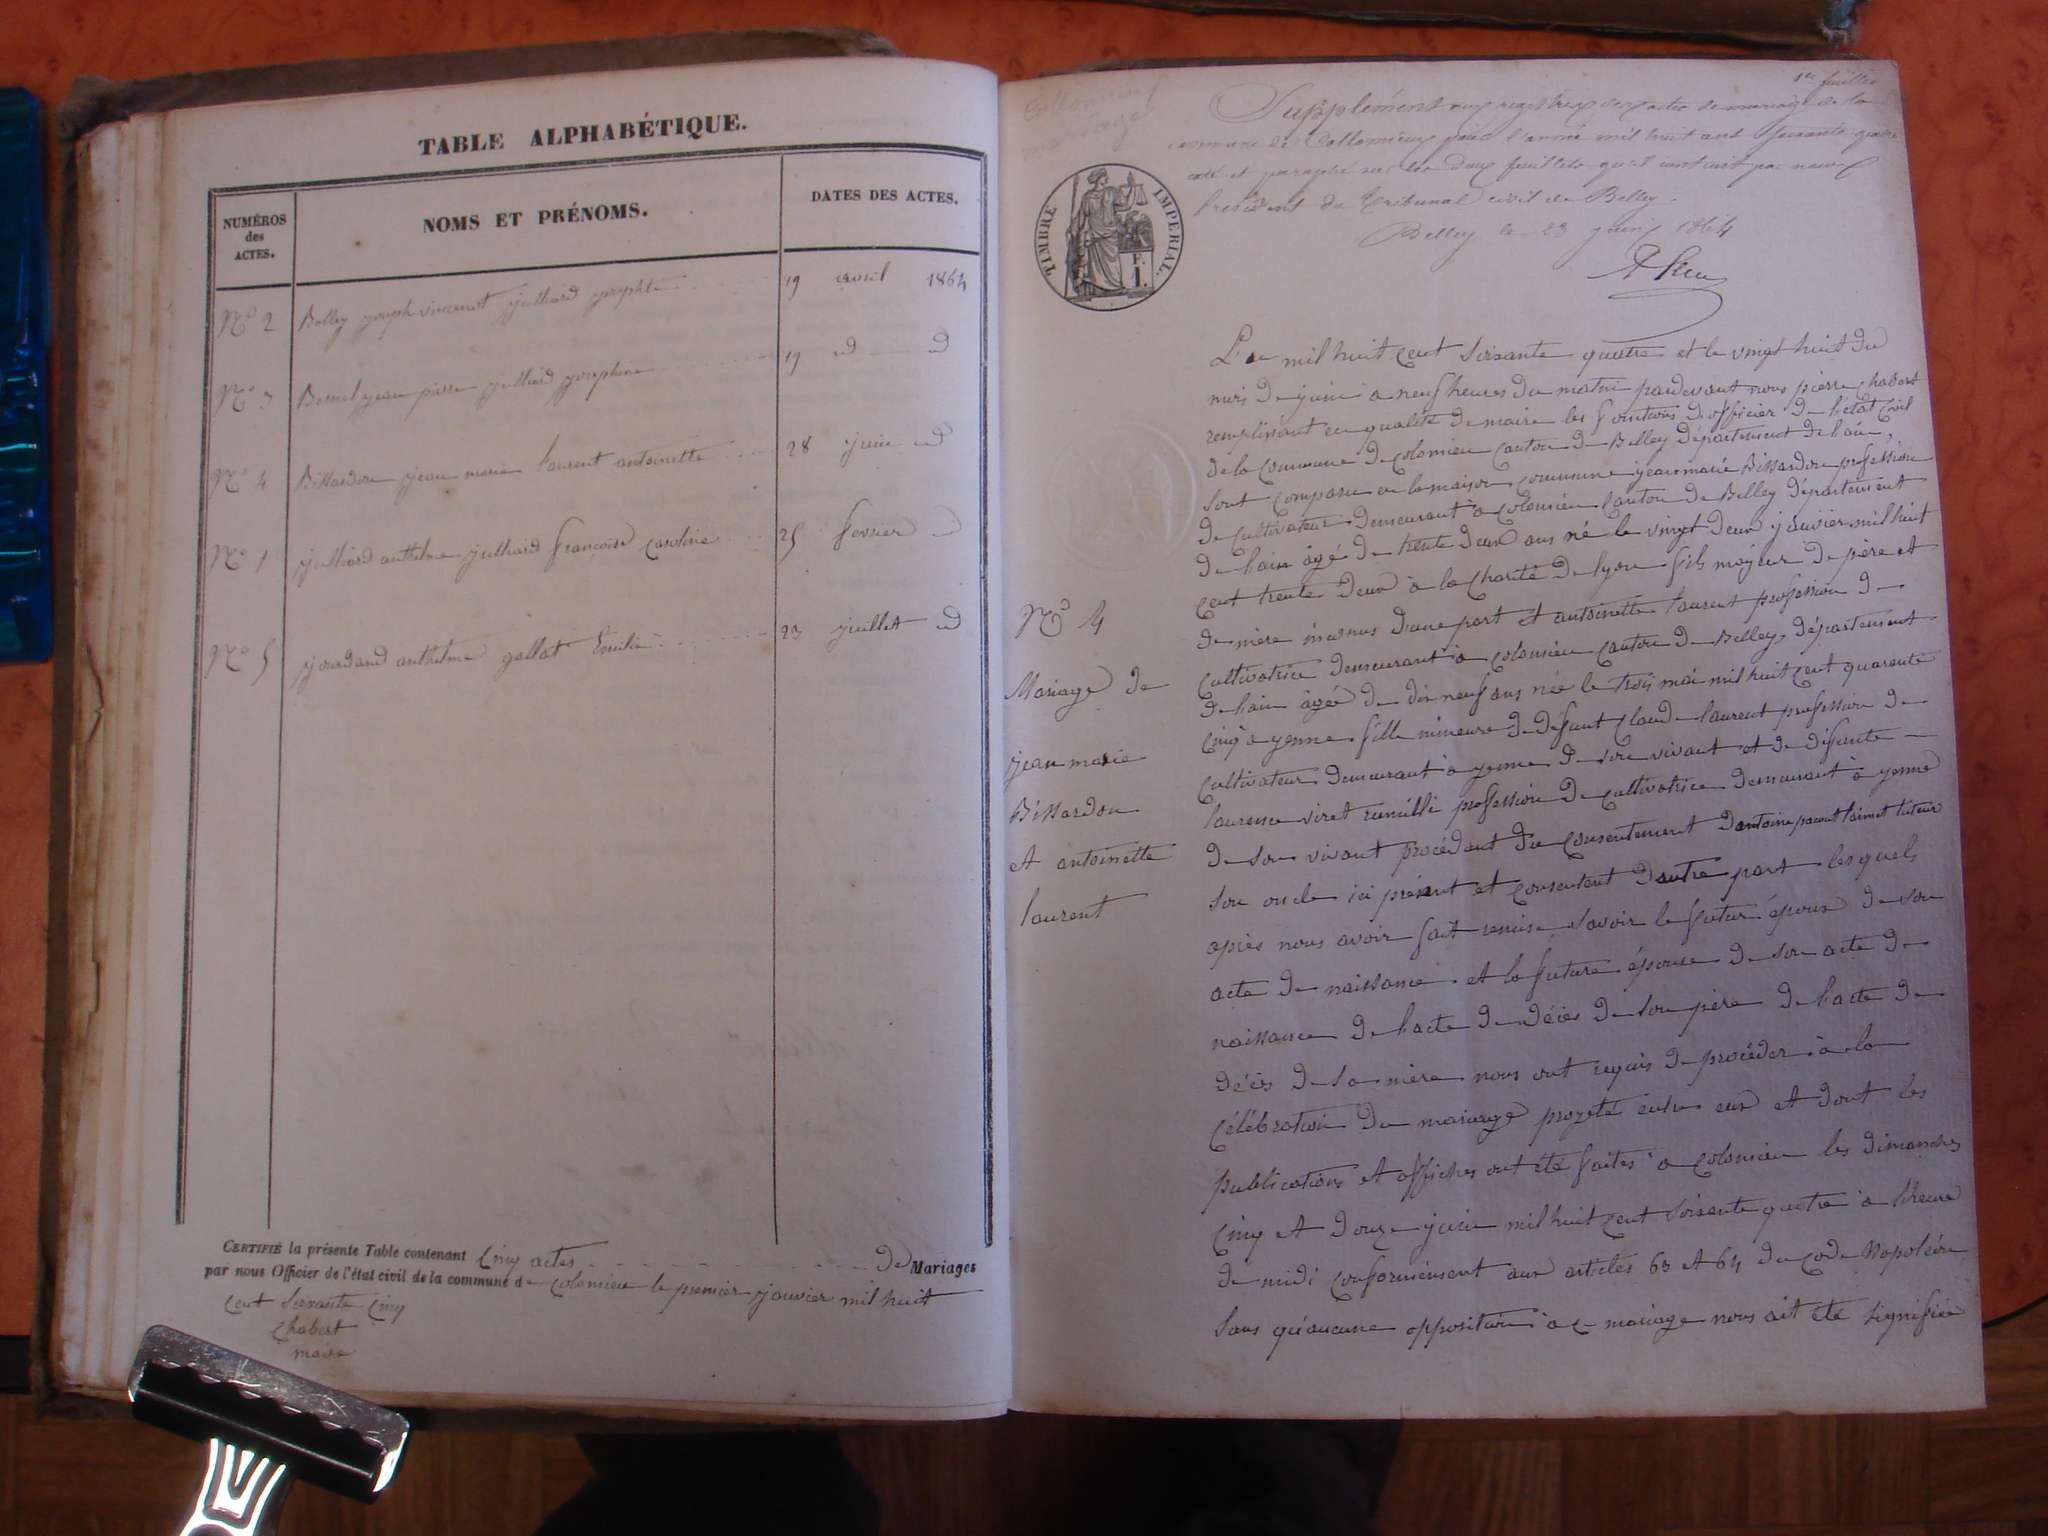 TABLE ALPHABÉTIQUE.
NUMÉROS
des
ACTES.
NOMS ET PRÉNOMS.
DATES DES ACTES.
No 2 Bolley joseph vincent julliard josephte 19 avril 1864
No 3 Bornel jean pierre julliard josephine 19 id id
No 4 Bissardon jean marie laurent antoinette 28 juin id
No 1 julliard anthelme julliard françoise caroline 25 fevrier id
No 5 jourdand anthelme gallat Emilie 23 juillet id
CERTIFIÉ la présente Table contenant cinq actes de Mariages
par nous Officier de l'état civil de la commune de colomieu le premier janvier mil huit
cent soixante cinq
chabert
maire
1er feuillet
Supplément aux registres des actes de mariage de la
commune de Collomieux pour l'année mil huit cent soixante quatre
coté et paraphé sur les deux feuillets qu'il contient par nous
Président du Tribunal civil de Belley.
Belley le 23 juin 1864
TIMBRE IMPERIAL.
F.
1.
No 4
Mariage de
jean marie
Bissardon
et antoinette
laurent
L'an mil huit cent soixante quatre et le vingt huit du
mois de juin a neuf heures du matin pardevant nous pierre chabert
remplissant en qualité de maire les fonctions d'officier de l'etat civil
de la commune de colomieu canton de Belley département de l'ain,
sont comparu en la maison commune jean marie Bissardon profession
de cultivateur demeurant à colomieu canton de Belley département
de l'ain âgé de trente deux ans né le vingt deux janvier mil huit
cent trente deux à la charité de lyon fils majeur de père et
de mère inconnus d'une part et antoinette laurent profession de
cultivatrice demeurant à colomieu canton de Belley département
de l'ain âgée de dix neuf ans née le trois mai mil huit cent quarente
cinq a yenne fille mineure de défunt claude laurent profession de
cultivateur demeurant à yenne de son vivant et de défunte
laurence viret rumilli profession de cultivatrice demeurant à yenne
de son vivant procédant du consentement d'antoine parent tuteur
son oncle ici présent et consentent d'autre part lesquels
après nous avoir fait remise savoir le futur époux de son
acte de naissance et la future épouse de son acte de
naissance de l'acte de décès de son père de l'acte de
décès de sa mère nous ont requis de procéder à la
célébration du mariage projeté entre eux et dont les
publications et affiches ont été faites à colomieu les dimanches
cinq et douze juin mil huit cent soixante quatre à l'heure
de midi conformément aux articles 63 et 64 du code Napoléon
sans qu'aucune opposition à ce mariage nous ait été signifiée